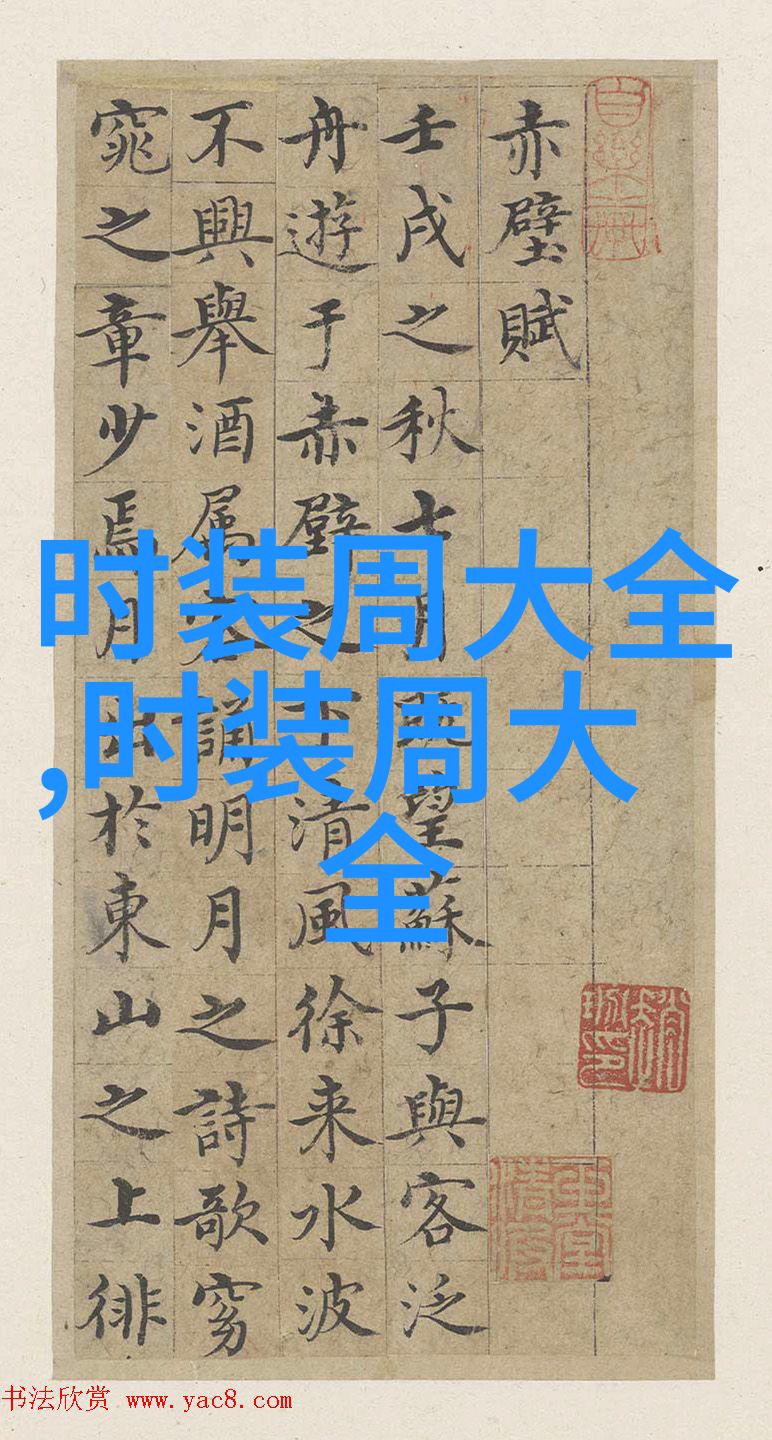 赤壁賦
壬戌之秋七月既望蘇子與客泛
舟遊于赤壁之下清風徐来水波
不興舉酒属客誦明月之詩歌窈
窕之章少焉月出於東山之上徘
时装周大全
,时装周大
全
书法欣赏 www.yac8.com